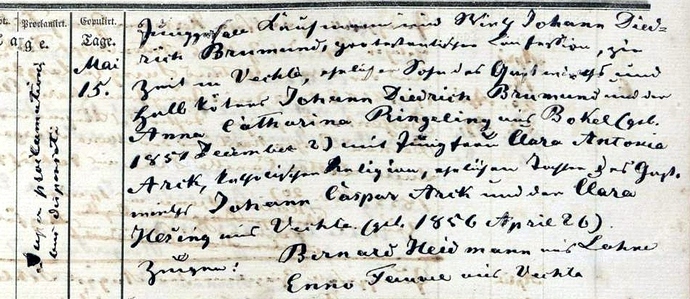 Proclamirt.
Copulirt.
T a g e.
Tage.
Mai
15.
super proclamationi
bus dispensati
Junggeselle Kaufmann und Wirth Johann Died-
rich Brumund, protestantischer Confession, zur
Zeit in Vechta, ehelicher Sohn des Gastwirths und
Halbkötners Johann Diedrich Brumund und der
Anna Catharina Ringeling aus Bokel (geb.
1851 December 2) mit Jungfrau Clara Antonia
Arck, katholischer Religion, ehelichen Tochter des Gast-
wirths Johann Caspar Arck und der Clara
Hesing aus Vechta (geb. 1856 April 26).
Zeugen: Bernard Heidmann aus Lohne
Enno aus Vechta